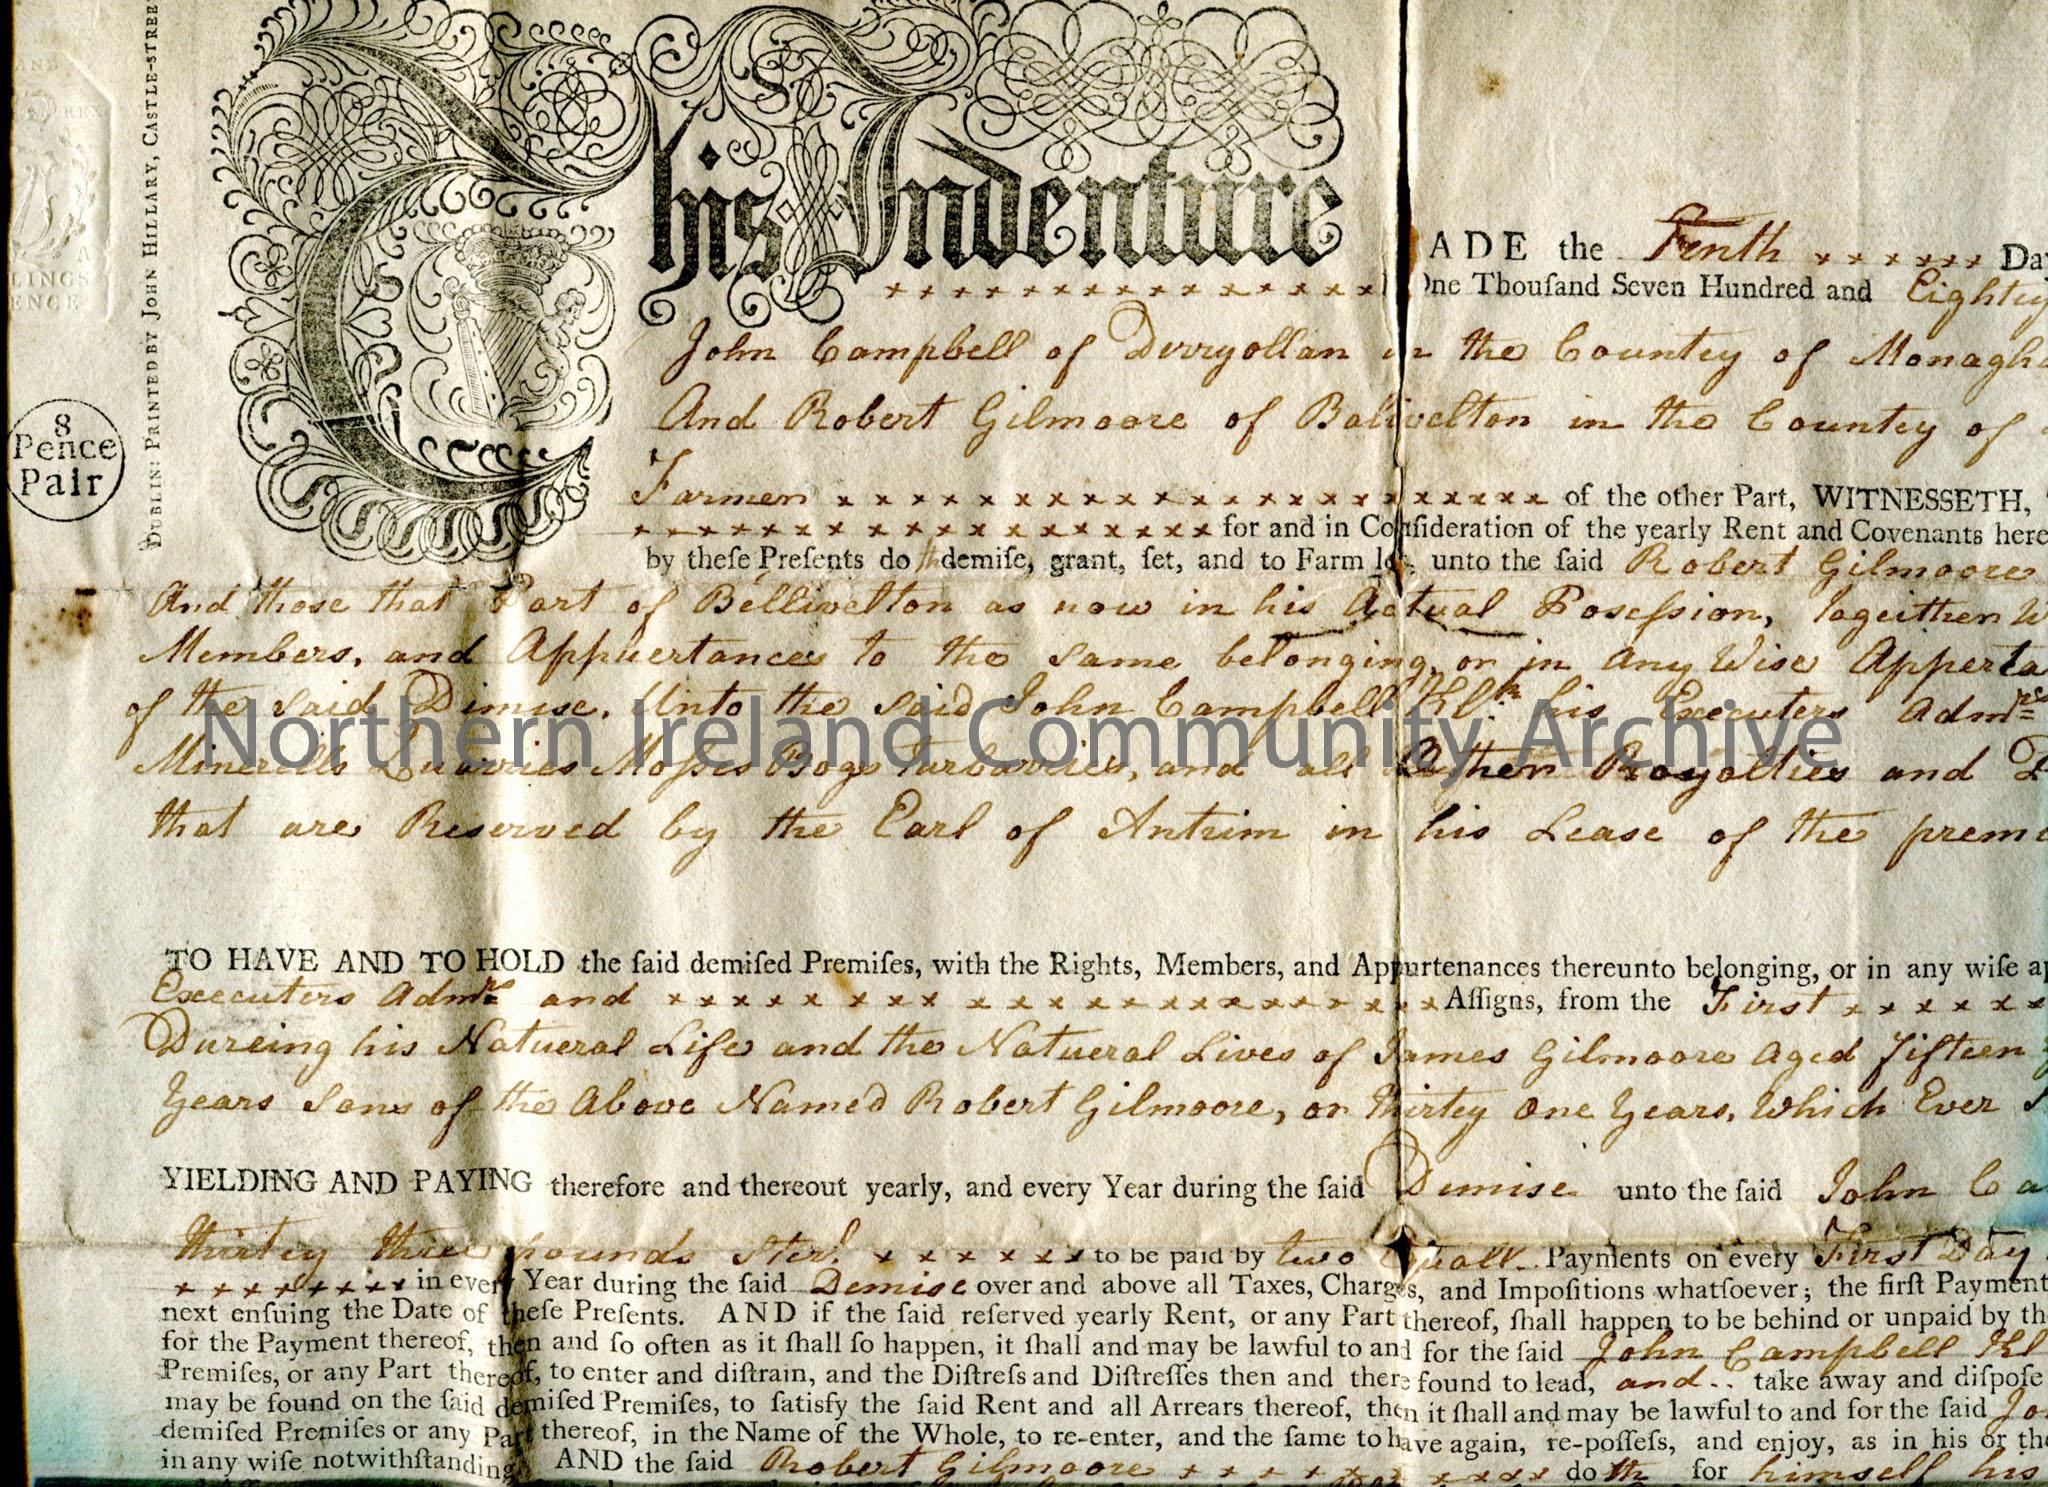 This Indenture
MADE the Tenth x x x x x x Day
x x x x x x x x x x x x x x x x One Thouſand Seven Hundred and Eighty
John Campbell of Derryollan in the Countey of Monagh
And Robert Gilmoore of Ballivelton in the Countey of
Farmer x x x x x x x x x x x x x x x x x x x x x of the other Part, WITNESSETH,
x x x x x x x x x x x x x x x x x x for and in Conſideration of the yearly Rent and Covenants here
by theſe Preſents do th demiſe, grant, ſet, and to Farm let, unto the ſaid Robert Gilmoore
And those that Part of Bellivelton as now in his Actual Poseſsion, Togeither W
Members, and Appuertances to the same belonging, or in any Wise Apperta
of the said Dimise. Unto the said John Campbell his Executers Admrs
Minerills Quarries Moſses Bogs Turbarries, and all Other Royalties and
that are Reserved by the Earl of Antrim in his Lease of the prem
TO HAVE AND TO HOLD the ſaid demiſed Premiſes, with the Rights, Members, and Appurtenances thereunto belonging, or in any wiſe ap
Executers Admrs and x x x x x x x x x x x x x x x x x x x x x x Aſſigns, from the First x x x x x x
Dureing his Natueral Life and the Natueral Lives of James Gilmoore Aged Fifteen
Years Sons of the Above Named Robert Gilmoore, or thirtey One Years, Which Ever
YIELDING AND PAYING therefore and thereout yearly, and every Year during the ſaid Demise unto the ſaid John Ca
thirtey three pounds Ster! x x x x x x x to be paid by two Equall Payments on every First Day
x x x x x x x x in every Year during the ſaid Demise over and above all Taxes, Charges, and Impoſitions whatſoever; the firſt Payment
next enſuing the Date of theſe Preſents. AND if the ſaid reſerved yearly Rent, or any Part thereof, ſhall happen to be behind or unpaid by the
for the Payment thereof, then and ſo often as it ſhall ſo happen, it ſhall and may be lawful to and for the ſaid John Campbell
Premiſes, or any Part thereof, to enter and diſtrain, and the Diſtreſs and Diſtreſſes then and there found to lead, and.. take away and diſpoſe
may be found on the ſaid demiſed Premiſes, to ſatisfy the ſaid Rent and all Arrears thereof, then it ſhall and may be lawful to and for the ſaid Jo
demiſed Premiſes or any Part thereof, in the Name of the Whole, to re-enter, and the ſame to have again, re-poſſeſs, and enjoy, as in his or the
in any wiſe notwithſtanding. AND the ſaid Robert Gilmoore x x x x x x x x x x do th for himself his
DUBLIN: PRINTED BY JOHN HILLARY, CASTLE-STREE
8
Pence
Pair
AND
REX
A
LLINGS
ENCE
Northern Ireland Community Archive